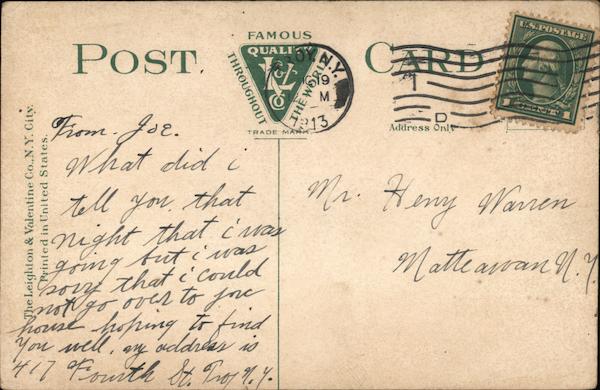 POST CARD
FAMOUS
QUALITY
THROUGHOUT THE WORLD
L V CO
TRADE MARK
TROY, N.Y.
9
M
1913
1
D
U.S. POSTAGE
1 CENT 1
Address Only
The Leighton & Valentine Co., N.Y. City.
Printed in United States.
From. Joe.
What did i
tell you that
night that i was
going but i was
sory that i could
not go over to your
house hoping to find
You well. my address is
417 Fourth St. Troy N.Y.
Mr. Henry Warren
Matteawan N.Y.